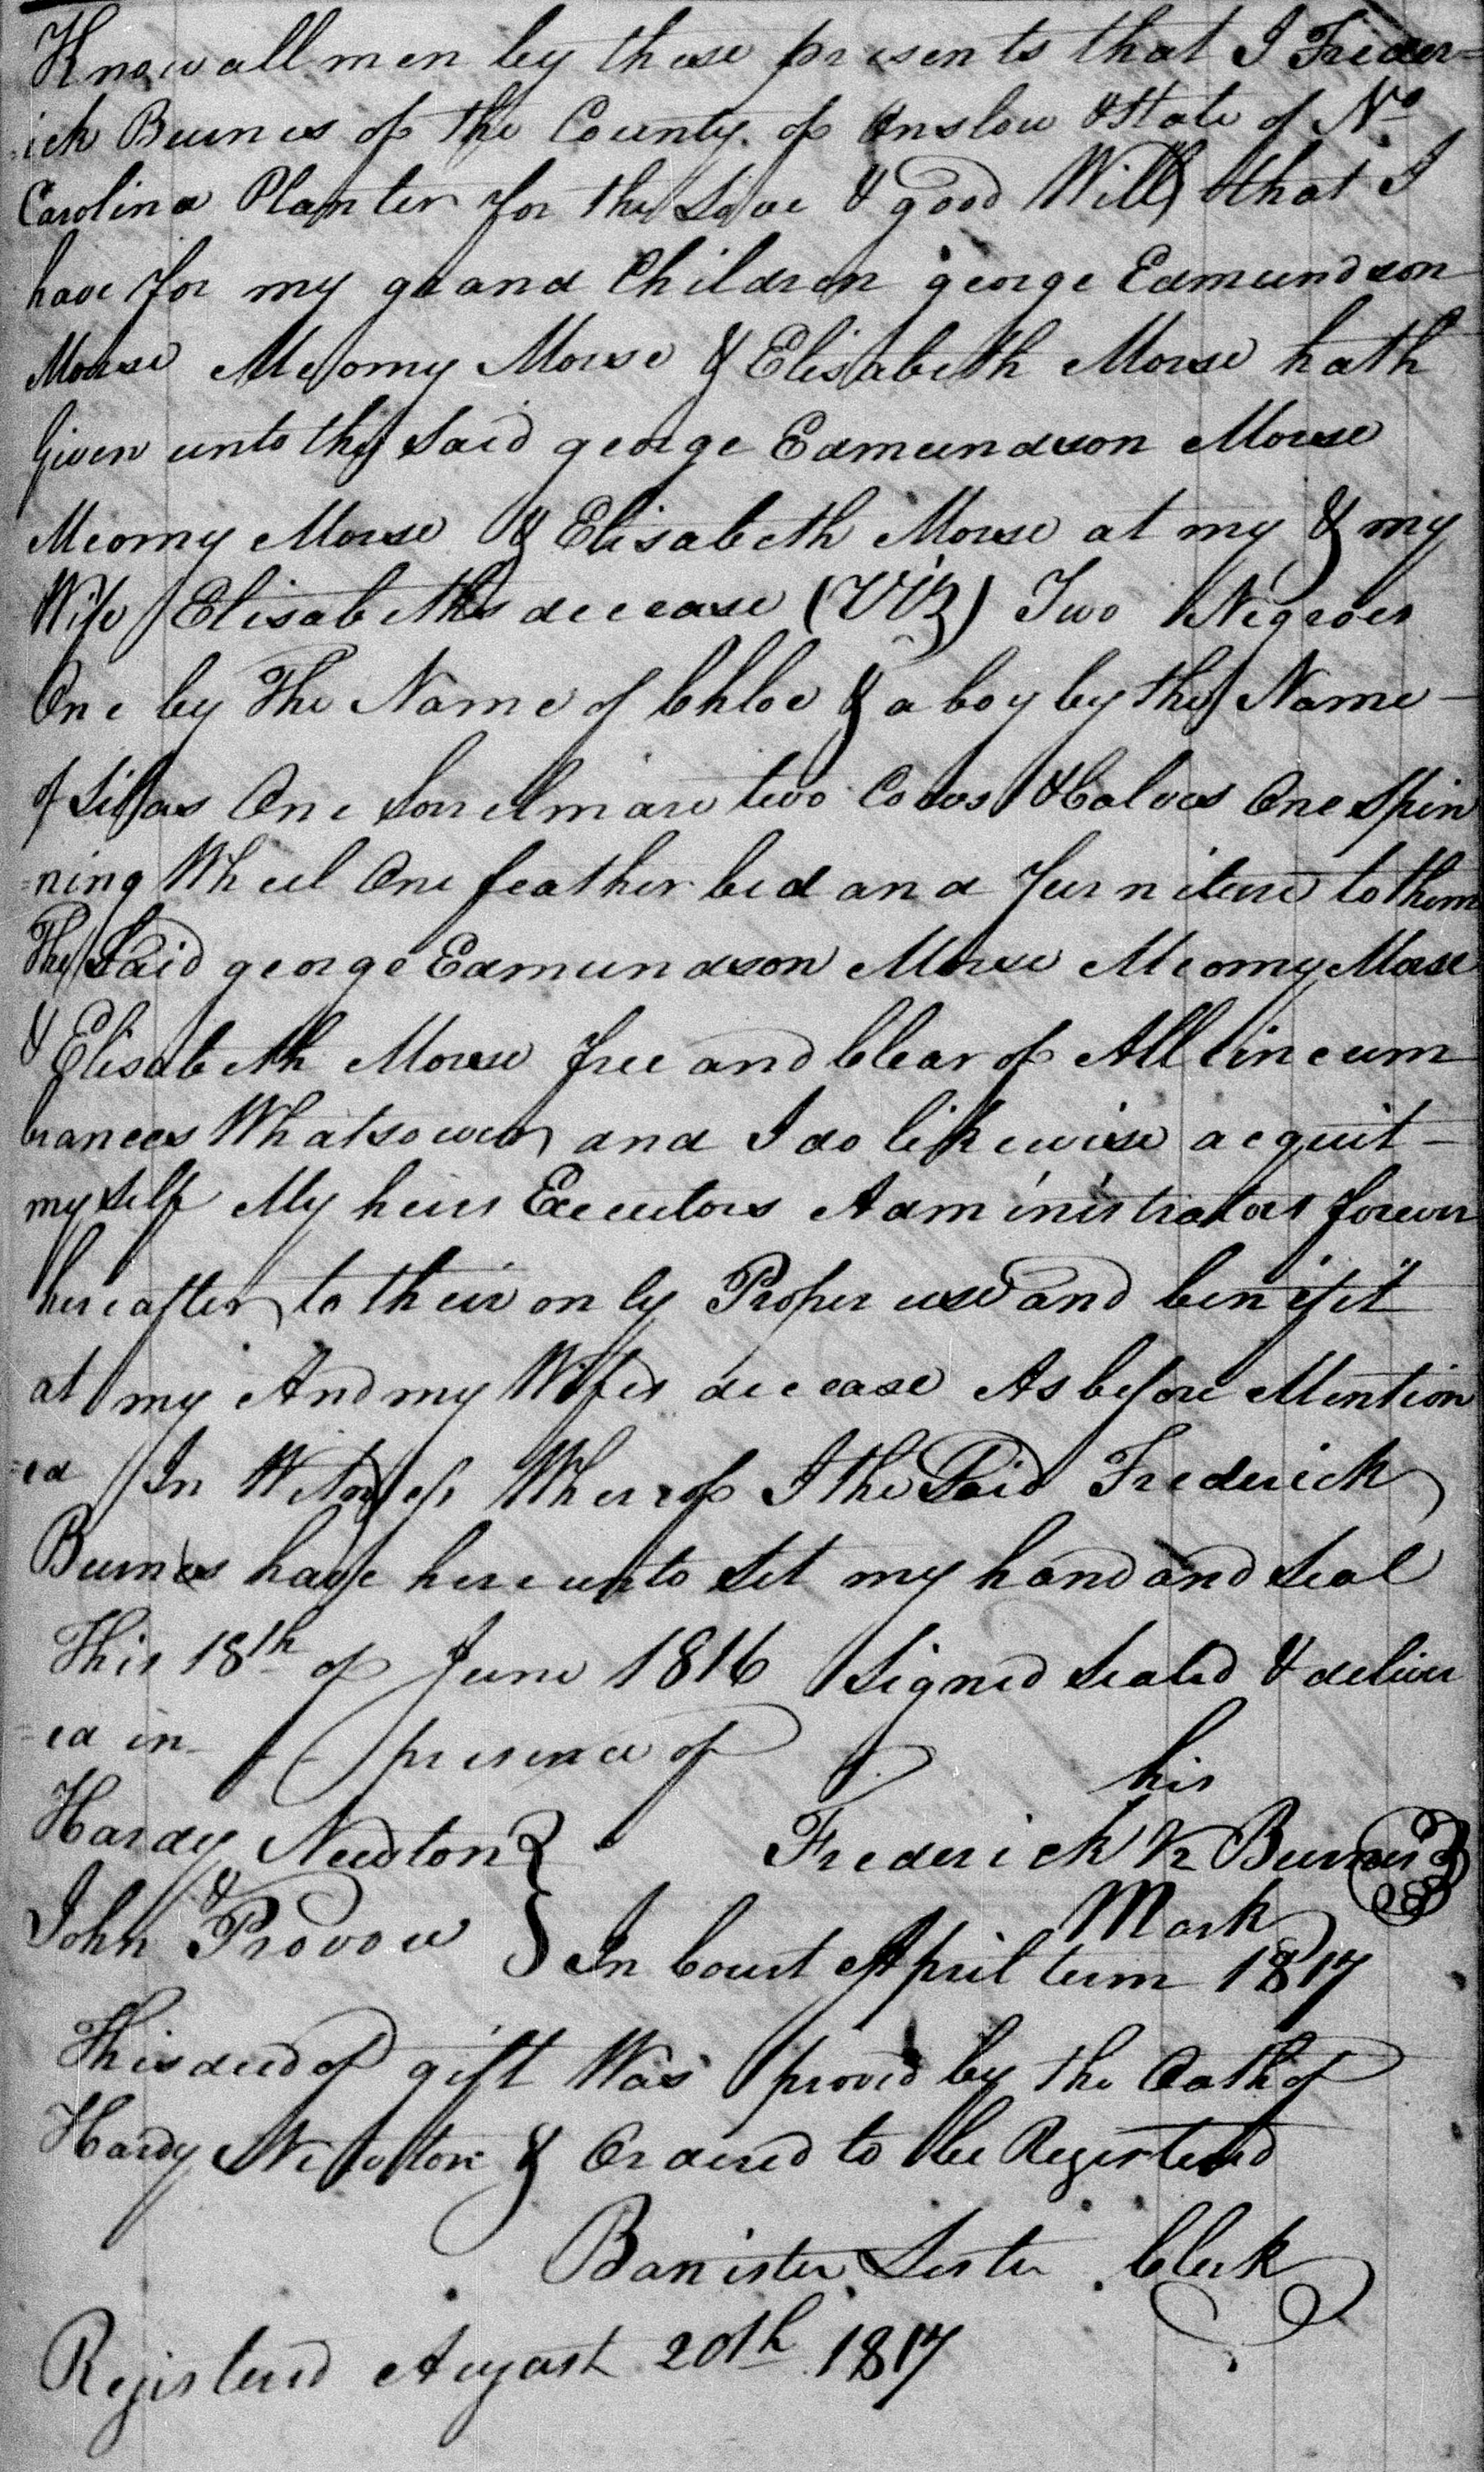 Know all men by these presents that I Freder=
=ick Burnes of the County of Onslow & State of No
Carolina Planter for the Love & good Will that I
have for my grand Children george Edmundson
Morse Meomy Morse & Elisabeth Morse hath
Given unto the Said george Edmundson Morse
Meomy Morse & Elisabeth Morse at my & my
Wife Elisabeths decease (Viz) Two Negroes
One by The Name of Chloe & a boy by the Name
of Silas One Sorrel mare two Cows & Calves One Spin
=ning Wheel One feather bed and furniture to them
The Said george Edmundson Morse Meomy Morse
& Elisabeth Morse free and Clear of All incum
brances Whatsoever and I do likewise acquit
my self My heirs Executors Administrators forever
hereafter to their only Proper use and benifit
at my And my Wifes decease As before Mention
=ed In Witness Whereof I the Said Frederick
Burnes have hereunto Set my hand and Seal
This 18th of June 1816 Signed Sealed & deliver
=ed in presence of
his
Hardy Newton Frederick Burnes
& Mark
John Provow In Court April term 1817
This deed of gift Was proved by the Oath of
Hardy Newton & Ordered to be Registerd
Banister Lester Clerk
Registerd August 20th 1817